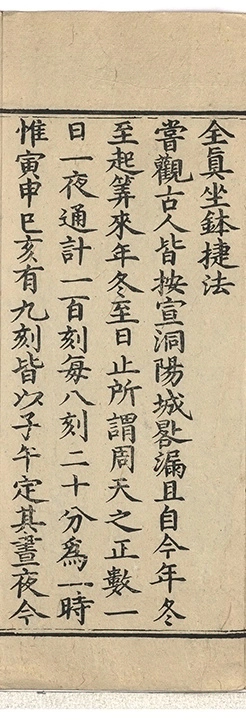 全眞坐鉢捷法
嘗觀古人皆按宣洞陽城晷漏且自今年冬
至起筭來年冬至日止所謂周天之正數一
日一夜通計一百刻每八刻二十分爲一時
惟寅申巳亥有九刻皆以子午定其晝夜今